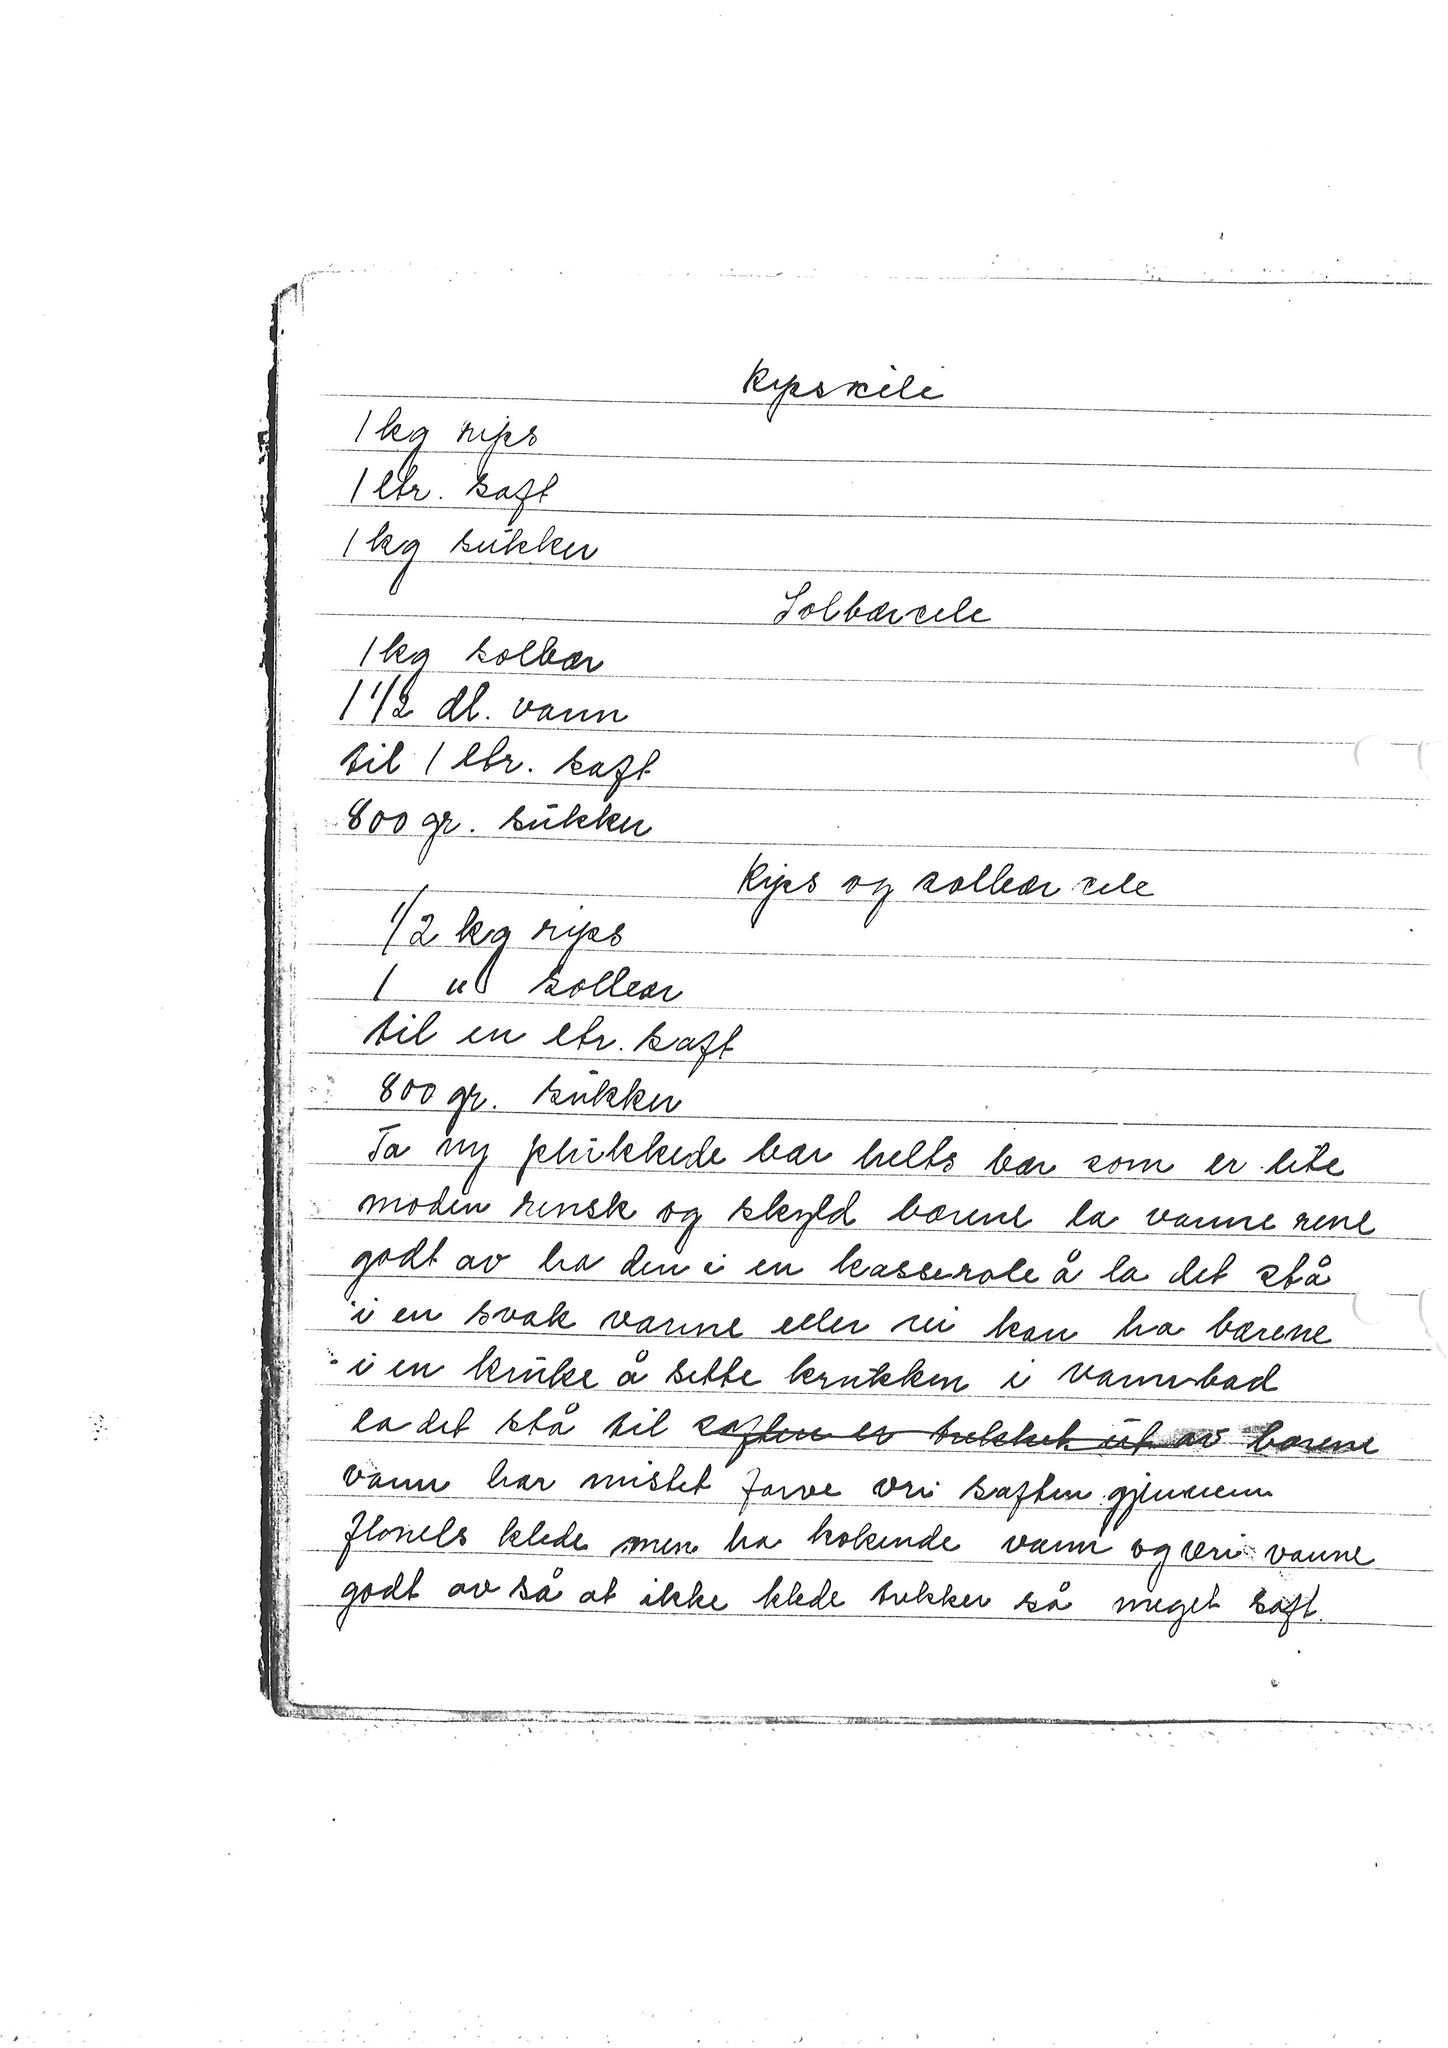 Ripsxeli
1 kg rips
1 ltr. saft
1 kg sukker
Solbærxele
1 kg solbær
1 1/2 dl. vann
til 1 ltr. saft
800 gr. sukker
Rips og solbær xele
1/2 kg rips
1 " solbær
til en ltr. saft
800 gr. sukker
Ta ny plukkede bær helts bær som er lite
moden rensk og skyld bærene la vanne rene
godt av ha den i en kasserole å la det stå
i en svak varme eller vi kan ha bærene
i en kruke å sette krukken i vannbad
la det stå til saften er trekket ut av bærene
vann har mistet farve vri saften gjennem
flonels klede men ha kokende vann og vri vanne
godt av så at ikke klede trekker så meget saft.